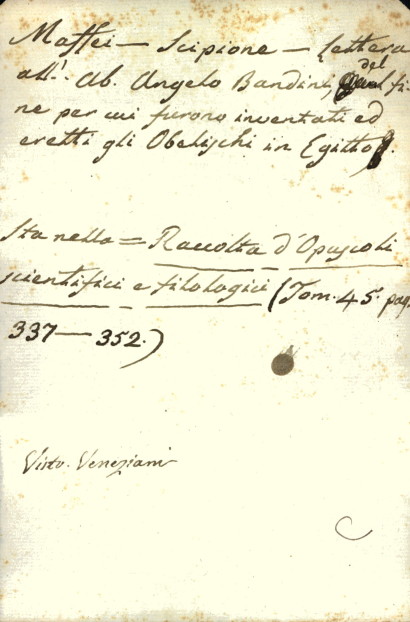 Maffei — Scipione — Lettera
all'. Ab. Angelo Bandini del fi-
ne per cui furono inventati ed
eretti gli Obelischi in Egitto.
Sta nella = Raccolta d'Opuscoli
scientifici e filologici (Tom. 45. pag.
337 — 352.)
Visto. Veneziani